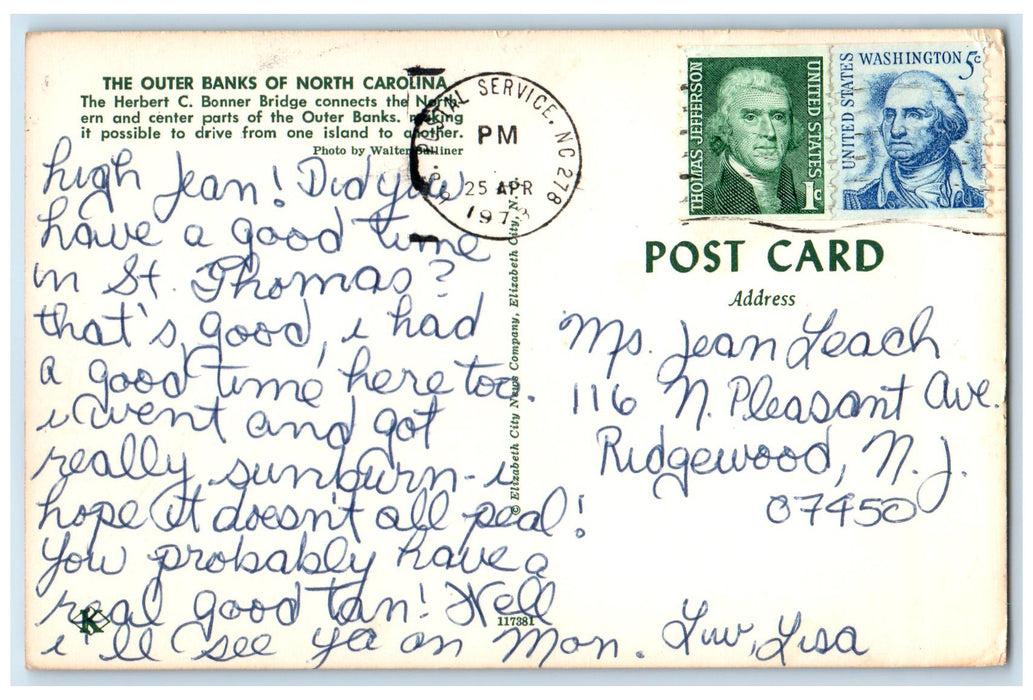 THE OUTER BANKS OF NORTH CAROLINA
The Herbert C. Bonner Bridge connects the North-
ern and center parts of the Outer Banks. making
it possible to drive from one island to another.
Photo by Walter Gulliner
high Jean! Did you
have a good time
in St. Thomas?
that's good, i had
a good time here too.
i went and got
really sunburn - i
hope it doesn't all peal!
You probably have a
real good tan! Well
i'll see ya on Mon. Luv, Lisa
K
117381
© Elizabeth City News Company, Elizabeth City, N.
POSTAL SERVICE, NC 278
PM
25 APR
197
THOMAS JEFFERSON
UNITED STATES
1c
UNITED STATES
WASHINGTON 5c
POST CARD
Address
Ms. Jean Leach
116 N. Pleasant Ave.
Ridgewood, N.J.
07450